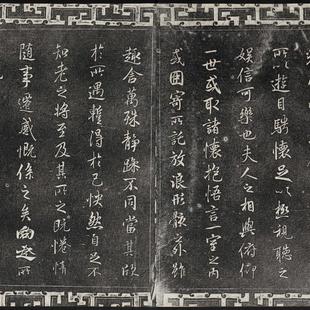 所以遊目騁懷足以極視聽之
娛信可樂也夫人之相與俯仰
一世或取諸懷抱悟言一室之內
或因寄所託放浪形骸之外雖
趣舍萬殊靜躁不同當其欣
於所遇暫得於己快然自足不
知老之將至及其所之既惓情
隨事遷感慨係之矣向之所